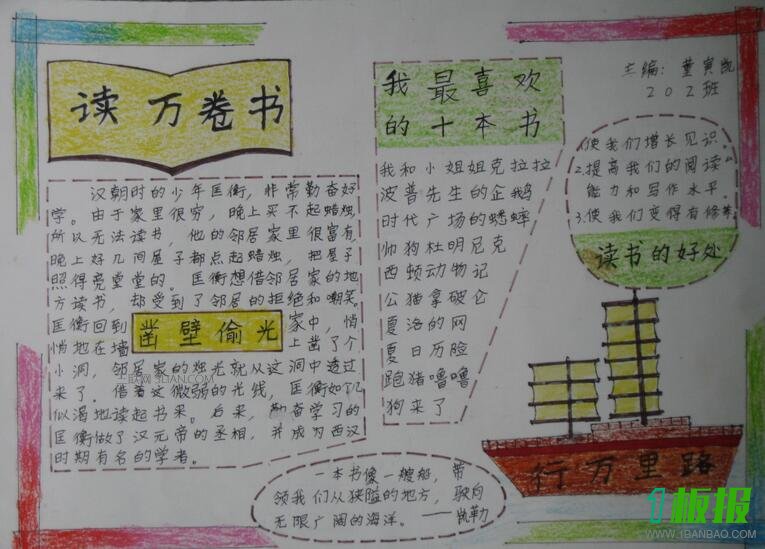 读万卷书
汉朝时的少年匡衡,非常勤奋好
学。由于家里很穷,晚上买不起蜡烛,
所以无法读书,他的邻居家里很富有,
晚上好几间屋子都点起蜡烛,把屋子
照得亮堂堂的。匡衡想借邻居家的地
方读书,却受到了邻居的拒绝和嘲笑。
匡衡回到 家中,悄
凿壁偷光
悄地在墙 上凿了个
小洞,邻居家的烛光就从这洞中透过
来了。借着这微弱的光线,匡衡如饥
似渴地读起书来。后来,勤奋学习的
匡衡做了汉元帝的丞相,并成为西汉
时期有名的学者。
我最喜欢
的十本书
我和小姐姐克拉拉
波普先生的企鹅
时代广场的蟋蟀
帅狗杜明尼克
西顿动物记
公猫拿破仑
夏洛的网
夏日历险
跑猪噜噜
狗来了
主编:董寅凯
202班
1.使我们增长见识。
2.提高我们的阅读
能力和写作水平。
3.使我们变得有修养。
读书的好处
行万里路
一本书像一艘船,带
领我们从狭隘的地方,驶向
无限广阔的海洋。——凯勒
1板报
WWW.1BANBAO.COM